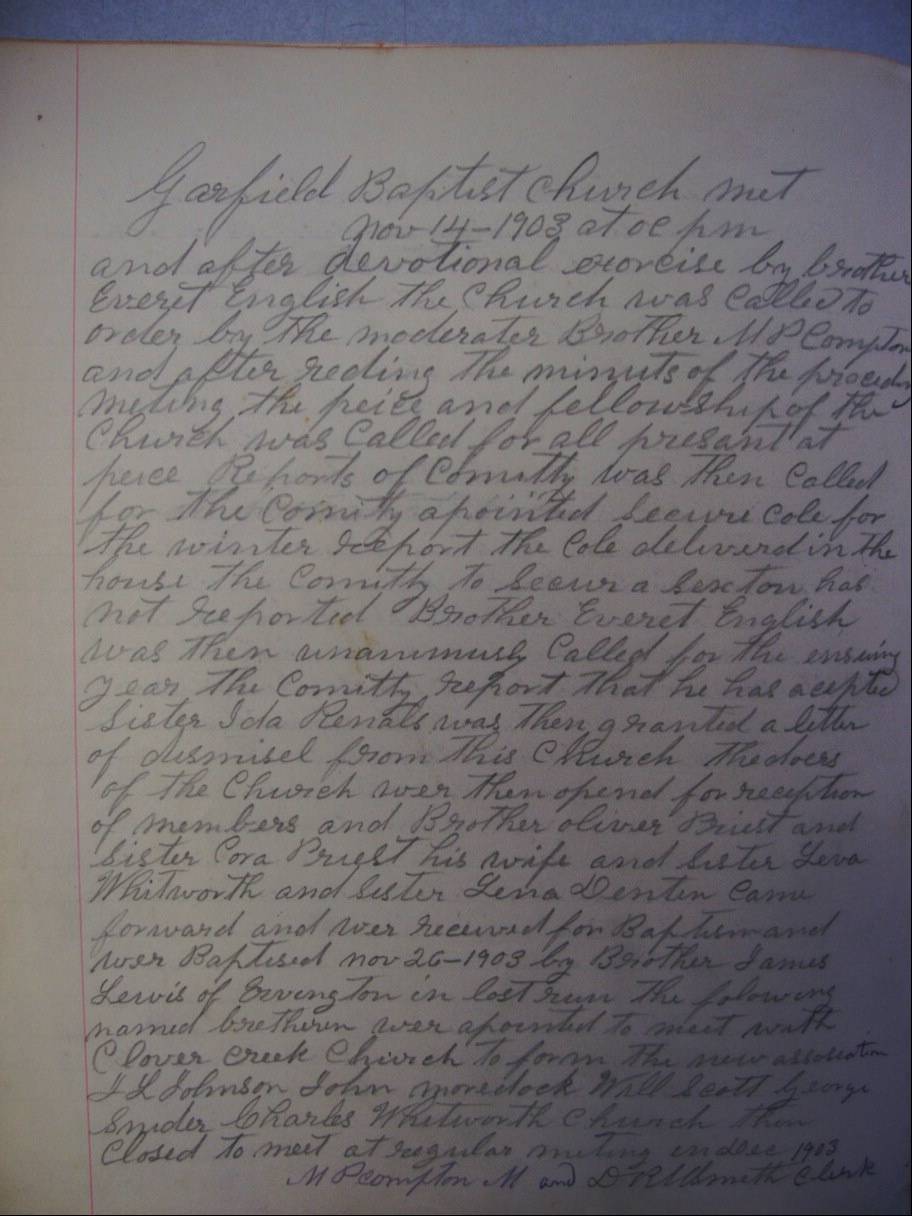 Garfield Baptist Church met
nov 14-1903 at oc pm
and after devotional exorcise by brother
Everet English the Church was Called to
order by the moderater Brother M P Compton
and after reding the minuts of the preced
meting the peice and fellowship of the
Church was Called for all presant at
peice Reports of Comitty was then Called
for the Comitty apointed secure cole for
the winter report the cole deliverd in the
house the Comitty to secure a sexton has
not reported Brother Everet English
was then unanimusly Called for the ensuing
year the Comitty report that he has acepted
Sister Ida Renals was then granted a letter
of dismisel from this Church the doers
of the Church wer then opend for reception
of members and Brother oliver Priest and
Sister Cora Priest his wife and Sister Leva
Whitworth and Sister Lena Denten Came
forward and wer received for Baptism and
wer Baptised nov 26-1903 by Brother James
Lewis of Ervington in lost run the folowing
named bretheren wer apointed to meet with
Clover creek Church to form the new assosiation
J L Johnson John moredock Will Scott George
Snider Charles Whitworth Church then
Closed to meet at regular meting in Dec 1903
M P compton M and D R Clerk